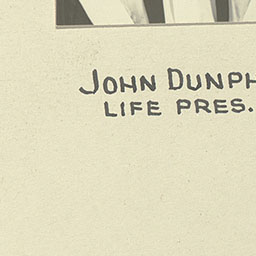 JOHN DUNPH
LIFE PRES.